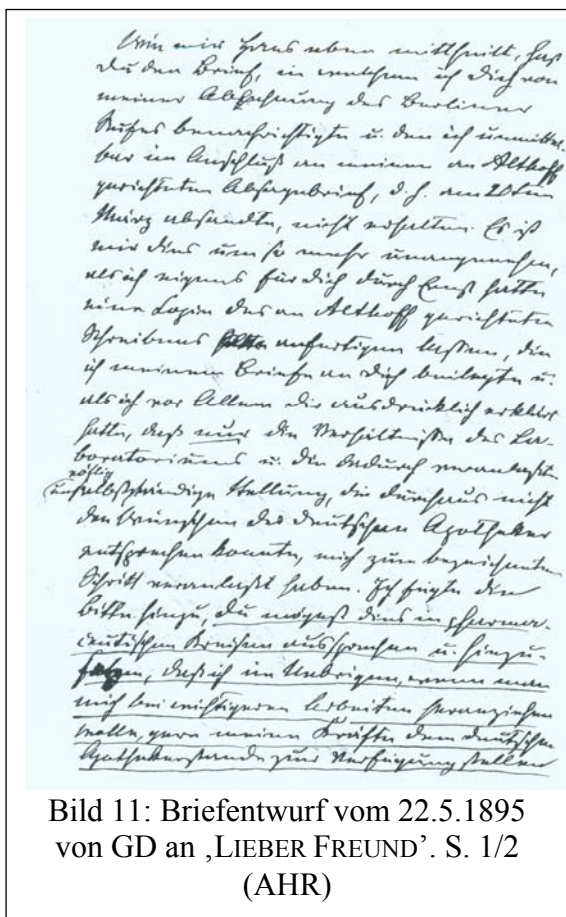 Wie mir Hans eben mittheilt, hast
Du den Brief, in welchem ich Dich von
meiner Ablehnung des Berliner
Rufes benachrichtigte u. den ich unmittel-
bar im Anschluß an meinen an Althoff
gerichteten Absagebrief, d. h. am 20ten
März absandte, nicht erhalten. Es ist
mir dies um so mehr unangenehm,
als ich eigens für Dich durch Ernst hatte
eine Copie des an Althoff gerichteten
Schreibens anfertigen lassen, die
ich meinem Briefe an Dich beilegte u.
als ich vor Allem Dir ausdrücklich erklärt
hatte, daß nur die Verhältnisse des La-
boratoriums u. die dadurch veranlaßte
völlig
unselbstständige Stellung, die durchaus nicht
den Wünschen der deutschen Apotheker
entsprechen konnte, mich zum bezeichneten
Schritt veranlaßt haben. Ich fügte die
Bitte hinzu, Du mögest dies in pharma-
ceutischen Kreisen aussprechen u. hinzu-
setzen, daß ich im Uebrigen, wenn man
mich bei wichtigeren Arbeiten heranziehen
wolle, gern meine Kräfte dem deutschen
Apothekerstande zur Verfügung stellen
Bild 11: Briefentwurf vom 22.5.1895
von GD an ‚LIEBER FREUND’. S. 1/2
(AHR)